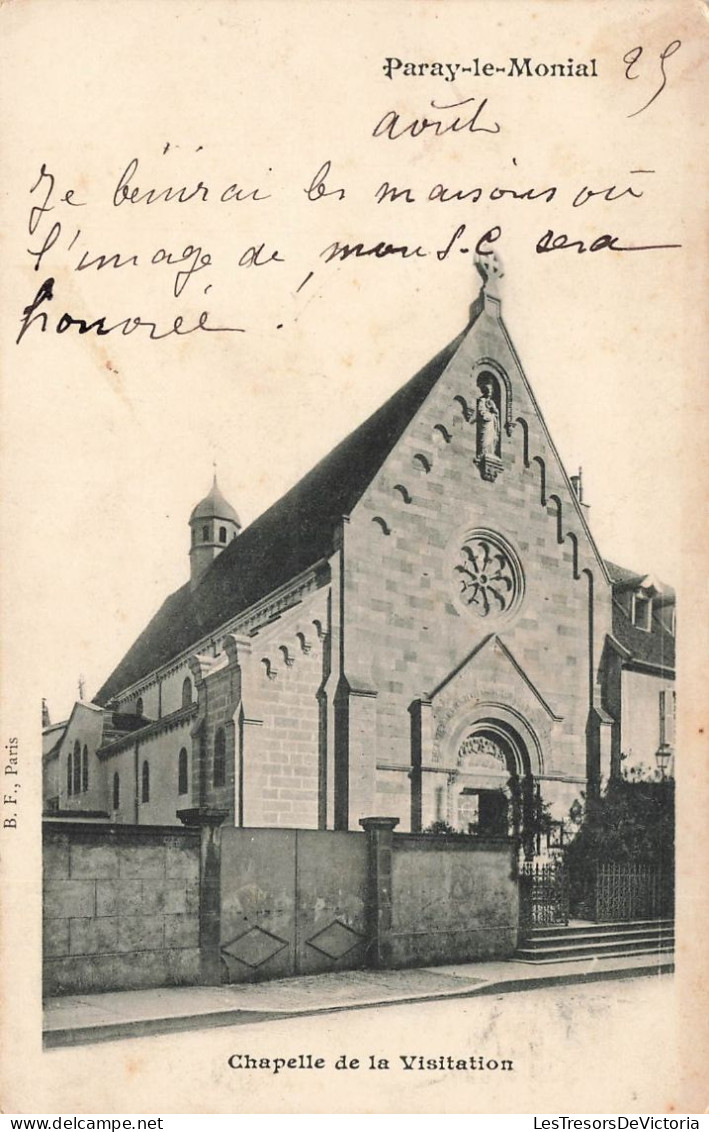 Paray-le-Monial 25
août
Je bénirai les maisons où
l'image de mon S.C sera
honorée !
B. F., Paris
Chapelle de la Visitation
LesTresorsDeVictoria
https://www.delcampe.net